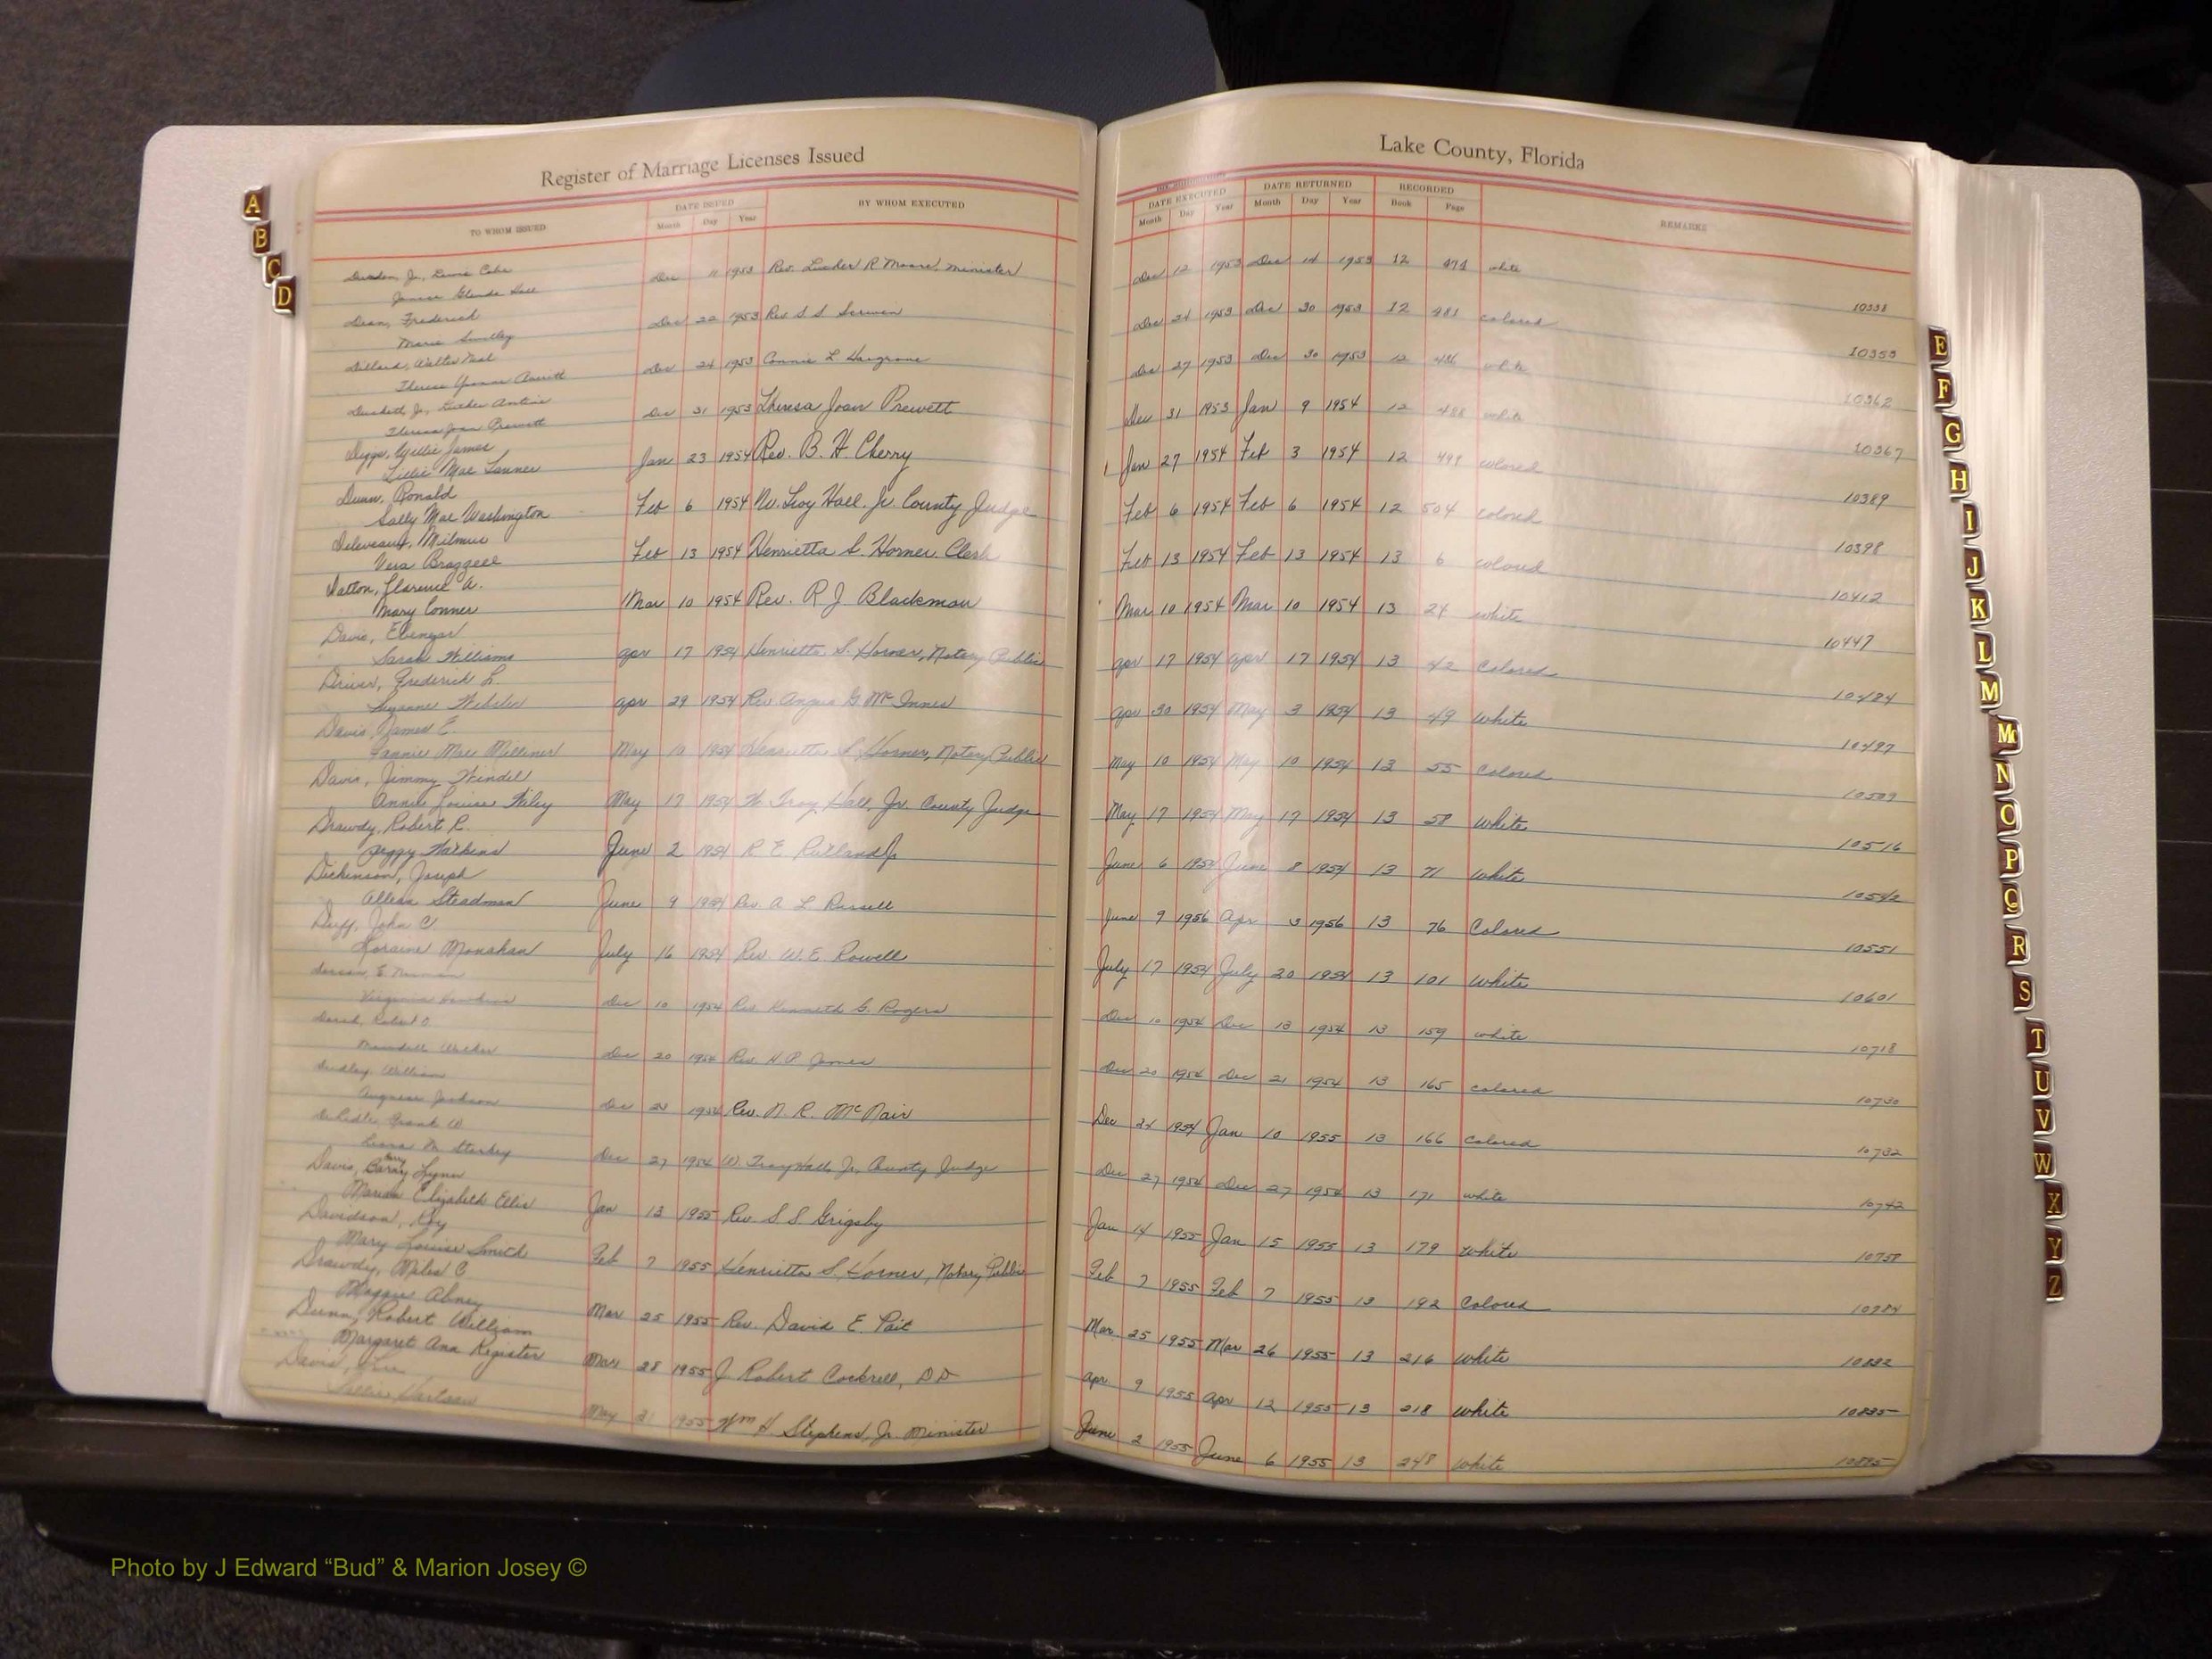 Register of Marriage Licenses Issued
Lake County, Florida
TO WHOM ISSUED
DATE ISSUED
Month Day Year
BY WHOM EXECUTED
DATE EXECUTED
Month Day Year
DATE RETURNED
Month Day Year
RECORDED
Book Page
REMARKS
Dec 11 1953 Rev. Luther R Moore, minister Dec 12 1953 Dec 14 1953 12 474 white
Janice Glenda 10338
Dean, Frederick
Marie Smiley Dec 22 1953 Rev S S Dec 24 1953 Dec 30 1953 12 481 colored
10353
Dillard, Walter Neal
Theresa Yvonne Dec 24 1953 Connie L Hargrove Dec 27 1953 Dec 30 1953 12 486 white
10362
Jr, Luther
Theresa Joan Prewett Dec 31 1953 Theresa Joan Prewett Dec 31 1953 Jan 9 1954 12 488 white
10367
Diggs, Willie James
Lillie Mae Jan 23 1954 Rev. B. H. Cherry Jan 27 1954 Feb 3 1954 12 499 colored
10389
Dunn, Ronald
Sally Mae Washington Feb 6 1954 W. Troy Hall, Jr. County Judge Feb 6 1954 Feb 6 1954 12 504 colored
10398
Vera Brazzell Feb 13 1954 Henrietta S. Horner Clerk Feb 13 1954 Feb 13 1954 13 6 colored
10412
Clarence A.
Mary Conner Mar 10 1954 Rev. R J Blackmon Mar 10 1954 Mar 10 1954 13 24 white
10447
Davis, Ebenezer
Sarah Williams Apr 17 1954 Henrietta S. Horner, Notary Public Apr 17 1954 Apr 17 1954 13 42 Colored
10484
Driver, Frederick L.
Suzanne Webster Apr 29 1954 Rev Angus G. McInnes Apr 30 1954 May 3 1954 13 49 White
10497
Davis, James E.
Fannie Mae Milliner May 10 1954 Henrietta S. Horner, Notary Public May 10 1954 May 10 1954 13 55 Colored
10509
Davis, Jimmy Windell
Annie Louise Wiley May 17 1954 W. Troy Hall, Jr. County Judge May 17 1954 May 17 1954 13 58 White
10516
Drawdy, Robert R.
Peggy Watkins June 2 1954 R E Rutland Jr June 6 1954 June 8 1954 13 71 White
10542
Dickinson, Joseph
Steadman June 9 1954 Rev. A. L. Russell June 9 1956 Apr 3 1956 13 76 Colored
10551
Duff, John C.
Loraine Monahan July 16 1954 Rev. W. E. Rowell July 17 1954 July 20 1954 13 101 White
10601
Virginia Dec 10 1954 Rev Kenneth G. Rogers Dec 10 1954 Dec 13 1954 13 159 white
10718
Walker Dec 20 1954 Rev. H. P. James Dec 20 1954 Dec 21 1954 13 165 colored
10730
William
Jackson Dec 1954 Rev. N. R. McNair Dec 24 1954 Jan 10 1955 13 166 Colored
10732
Frank W.
M Starkey Dec 27 1954 W. Troy Hall, Jr., County Judge Dec 27 1954 Dec 27 1954 13 171 white
10742
Davis, Lynn
Elizabeth Ellis Jan 13 1955 Rev S S Grigsby Jan 14 1955 Jan 15 1955 13 179 White
10758
Davidson, Roy
Mary Louise Smith Feb 7 1955 Henrietta S. Horner, Notary Public Feb 7 1955 Feb 7 1955 13 192 Colored
10784
Drawdy, Miles C
Maggie Abney Mar 25 1955 Rev. David E. Pait Mar 25 1955 Mar 26 1955 13 216 White
10832
Dunn, Robert William
Margaret Ann Register Mar 28 1955 J. Robert Cockrell, DD Apr 9 1955 Apr 12 1955 13 218 White
10835
Davis,
May 31 1955 Wm H. Stephens, Jr. Minister June 2 1955 June 6 1955 13 248 White
10895
A
B
C
D
E
F
G
H
I
J
K
L
M
Mc
N
O
P
Q
R
S
T
U
V
W
X
Y
Z
Photo by J Edward “Bud” & Marion Josey ©